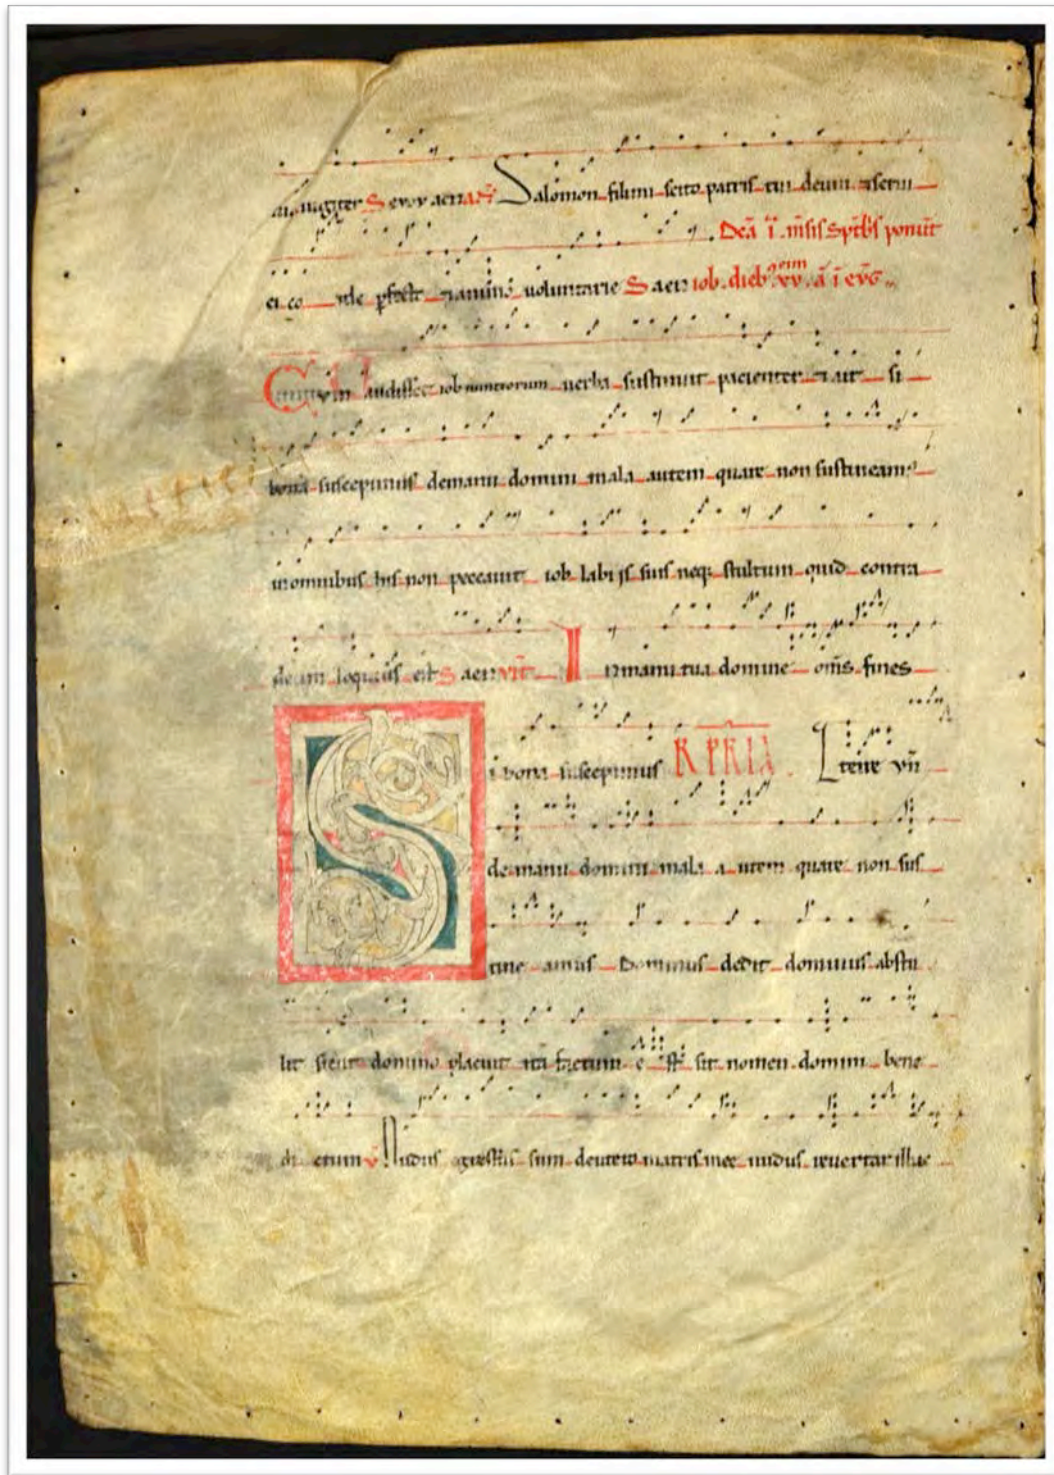 iugiter Seuouaen Salomon filium scito patris tui deum & serui
Deã ĩ m̃sis Sptb's ponũt
ei corde pfecto & animo uoluntarie S aen iob dieb' xv ã ĩ evg
Cum audisset iob nuntiorum uerba sustinuit pacienter & ait si
bona suscepimus demanu domini mala autem quare non sustineam'
inomnibus his non peccauit iob labijs suis neq; stultum quid contra
deum locutus est S aen vit̃ Inmanu tua domine om̃s fines
Si bona suscepimus R PRIA
demanu domini mala autem quare non sus
tine amus Dominus dedit dominus abstu
lit sicut domino placuit ita factum ẽ sit nomen domini bene
di ctum Nudus sum deutero matris mee nudus reuertar illuc